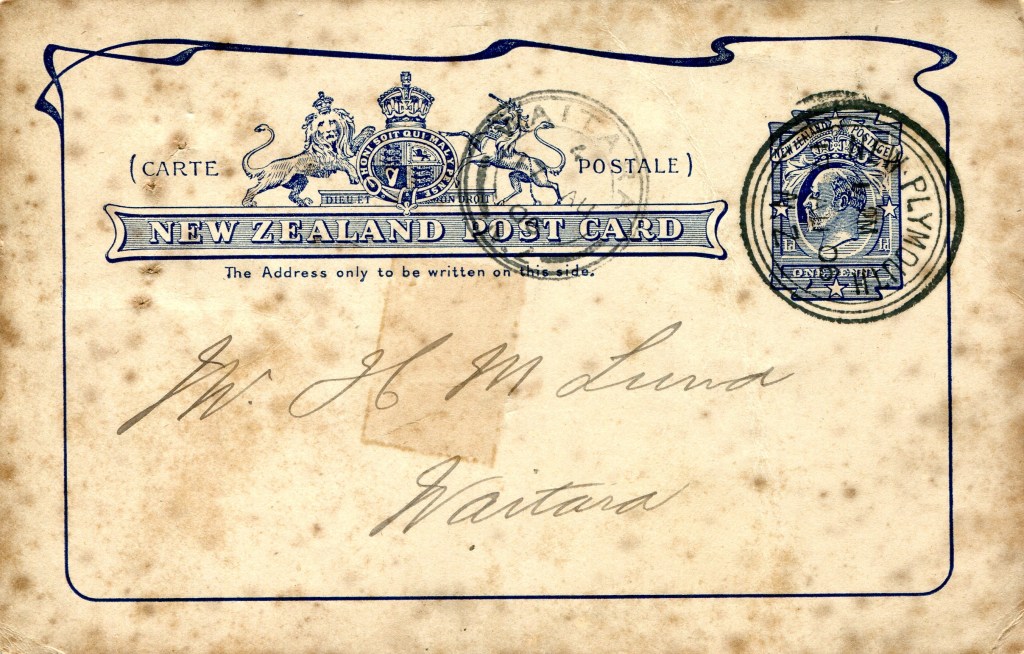 (CARTE POSTALE)
HONI SOIT QUI MAL Y PENSE
DIEU ET MON DROIT
NEW ZEALAND POST CARD
The Address only to be written on this side.
WAITARA
AU
09
NEW ZEALAND POSTAGE
1D 1D
ONE PENNY
N. PLYMOUTH
09
H M Lund
Waitara